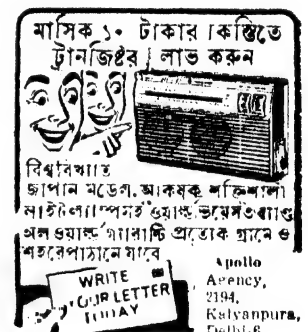 মাসিক ১০ টাকার কিস্তিতে
ট্রানজিষ্টর লাভ করুন
বিশ্ববিখ্যাত
জাপান মডেল, আকর্ষক শক্তিশালী
অল ওয়ার্ল্ড গ্যারান্টি প্রত্যেক গ্রামে ও
শহরে পাঠানো যাবে
WRITE
YOUR LETTER
TODAY
Apollo
Agency,
2194,
Kalyanpura,
Delhi-6